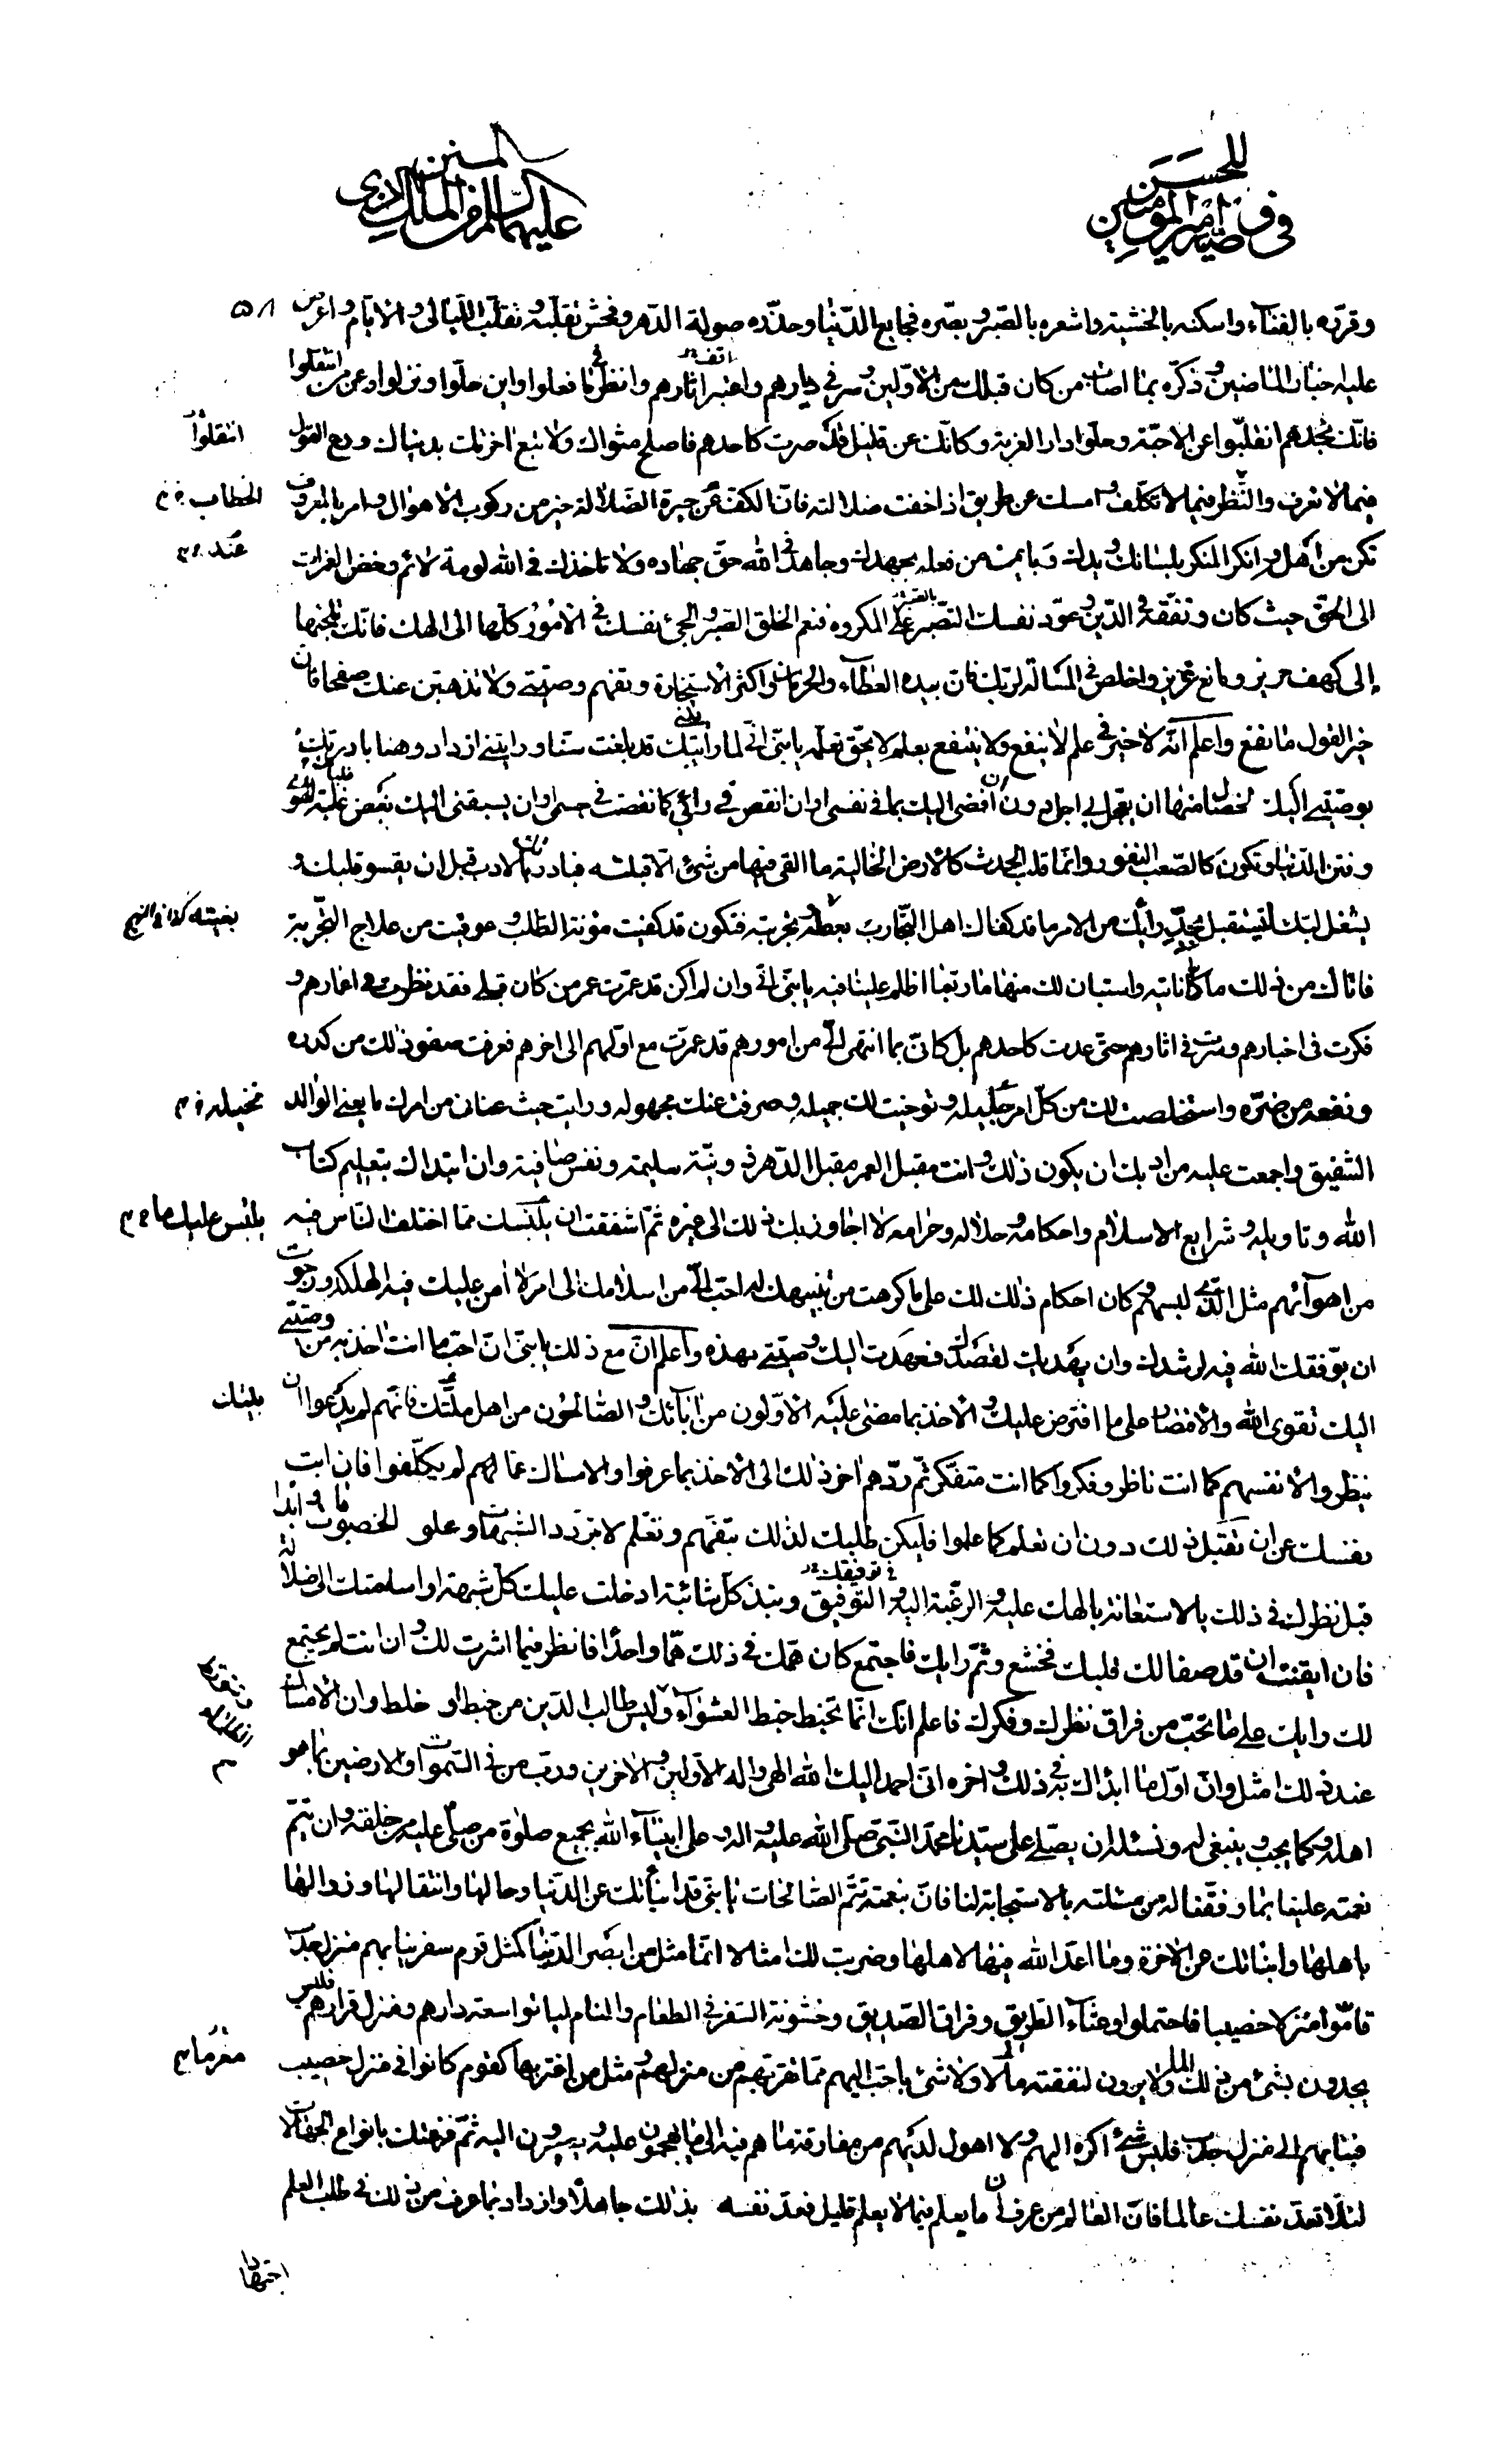 في وصية أمير المؤمنين للحسن
عليهما السلام من الملك الابدى
٥٨
وقرره بالفناء واسكنه بالخشية واشعره بالصبر وبصره فجايع الدنيا وحذره صولة الدهر وفحش تقلبه وتقلب الليالى والايام واعرض
عليه اخبار الماضين وذكره بما اصاب من كان قبلك من الاولين وسر فى ديارهم واعتبر اثارهم وانظر فى ما فعلوا واين حلوا ونزلوا وعمن انتقلوا
فانك تجدهم انقلبوا عن الاحبة وحلوا دار الغربة وكانك عن قليل قد صرت كاحدهم فاصلح مثواك ولا تبع اخرتك بدنياك ودع القول
انتقلوا
فيما لا تعرف والنظر فيما لا تكلف وامسك عن طريق اذا خفت ضلالته فان الكف عن حيرة الضلالة خير من ركوب الاهوال وامر بالمعروف
الخطاب
تكن من اهله وانكر المنكر بلسانك ويدك وباين من فعله بجهدك وجاهد فى الله حق جهاده ولا تاخذك فى الله لومة لائم وخض الغمرات
عند
الى الحق حيث كان وتفقه فى الدين وعود نفسك التصبر على المكروه فنعم الخلق الصبر والجئ نفسك فى الامور كلها الى الهك فانك تلجئها
إلى كهف حريز ومانع عزيز واخلص فى المسألة لربك فان بيده العطاء والحرمان واكثر الاستخارة وتفهم وصيتى ولا تذهبن عنك صفحا فان
خير القول ما نفع واعلم انه لا خير فى علم لا ينفع ولا ينتفع بعلم لا يحق تعلمه يا بنى انى لما رأيتك قد بلغت سنا ورايتنى ازداد وهنا بادرت
بوصيتى اليك لخصال منها ان يعجل بى اجلى دون ان افضى اليك بما فى نفسى او ان انقص فى رأيى كما نقصت فى جسمى او ان يسبقنى اليك بعض غلبة الهوى
وفتن الدنيا وتكون كالصعب النفور وانما قلب الحدث كالارض الخالية ما القى فيها من شئ الا قبلته فبادرتك بالادب قبل ان يقسو قلبك و
يشتغل لبك لتستقبل بجد رأيك من الامر ما قد كفاك اهل التجارب بغيته وتجربته فتكون قد كفيت مؤنة الطلب وعوفيت من علاج التجربة
بغيته كذا فى النهج
فاتاك من ذلك ما كنا ناتيه واستبان لك منها ما ربما اظلم علينا فيه يا بنى انى وان لم اكن قد عمرت عمر من كان قبلى فقد نظرت فى اعمارهم و
فكرت فى اخبارهم وسرت فى اثارهم حتى عدت كاحدهم بل كانى بما انتهى الى من امورهم قد عمرت مع اولهم الى اخرهم فعرفت صفو ذلك من كدره
ونفعه من ضره واستخلصت لك من كل امر جليله وتوخيت لك جميله وصرفت عنك مجهوله ورايت حيث عنانى من امرك ما يعنى الوالد
نخيله
الشفيق واجمعت عليه من ادبك ان يكون ذلك وانت مقبل العمر مقبل الدهر ذو نية سليمة ونفس صافية وان ابتداك بتعليم كتاب
الله وتاويله وشرايع الاسلام واحكامه وحلاله وحرامه لا اجاوز بك ذلك الى غيره ثم اشفقت ان يلبسك مما اختلف الناس فيه
يلتبس عليك ما
من اهوآئهم مثل الذى لبسهم وكان احكام ذلك لك على ما كرهت من تنبيهك له احب الى من اسلامك الى امر لا امن عليك فيه الهلكة ورجوت
ان يوفقك الله فيه لرشدك وان يهديك لقصدك فعهدت اليك وصيتى بهذه واعلم ان مع ذلك يا بنى ان احب ما انت اخذ به من وصيتى
اليك تقوى الله والاقتصار على ما افترض عليك والاخذ بما مضى عليه الاولون من آبآئك والصالحون من اهل ملتك فانهم لم يدعوا ان
بيتك
ينظروا لانفسهم كما انت ناظر وفكروا كما انت متفكر ثم ردهم اخر ذلك الى الاخذ بما عرفوا والامساك عما لهم لم يكلفوا فان ابت
نفسك عن ان تقبل ذلك دون ان تعلم كما علموا فليكن طلبك لذلك بتفهم وتعلم لا بتورد الشبهات وعلو الخصومات وابدا
قبل نظرك فى ذلك بالاستعانة بالهك عليه والرغبة اليه فى التوفيق ونبذ كل شائبة ادخلت عليك كل شبهة او اسلمتك الى ضلالة
فان ايقنت ان قد صفا لك قلبك فخشع وتم رايك فاجتمع كان همك فى ذلك هما واحدا فانظر فيما اشرت لك وان انت لم يجتمع
لك رايك على ما تحب من فراق نظرك وفكرك فاعلم انك انما تخبط خبط العشوآء وليس طالب الدين من خبط او خلط وان الامساك
عند ذلك امثل وان اول ما ابدأك به فى ذلك واخره انى احمد اليك الله الهى واله الاولين والاخرين ورب من فى السموات والارضين بما هو
اهله وكما يجب وينبغى له ونسئله ان يصلى على سيدنا محمد النبى صلى الله عليه واله وعلى انبيآء الله بجميع صلوة من صلى عليه من خلقه وان يتم
نعمته علينا بما وفقنا له من مسئلته بالاستجابة لنا فان بنعمته تتم الصالحات يا بنى قد انبأتك عن الدنيا وحالها وانتقالها وزوالها
باهلها وانبأتك عن الاخرة وما اعد الله فيها لاهلها وضربت لك امثالا انما مثل من ابصر الدنيا كمثل قوم سفر نبا بهم منزل جدب
فاموا منزلا خصيبا فاحتملوا وعثاء الطريق وفراق الصديق وخشونة السفر فى الطعام والمنام لياتوا سعة دارهم ومنزل قرارهم فليس
يجدون بشئ من ذلك الما ولا يرون لنفقته مالا ولا شئ باحب اليهم مما يقربهم من منزلهم ومثل من اغتر بها كقوم كانوا فى منزل خصيب
مغرما
فنبا بهم الى منزل جدب فليس شئ اكره اليهم ولا اهول لديهم من مفارقة ما هم فيه الى ما يهجمون عليه ويصيرون اليه ثم فزعتك بانواع الجهالات
لئلا تعد نفسك عالما فان العالم من عرف ان ما يعلم فيما لا يعلم قليل فعد نفسه بذلك جاهلا وازداد بما عرف من ذلك فى طلب العلم
اجتهادا